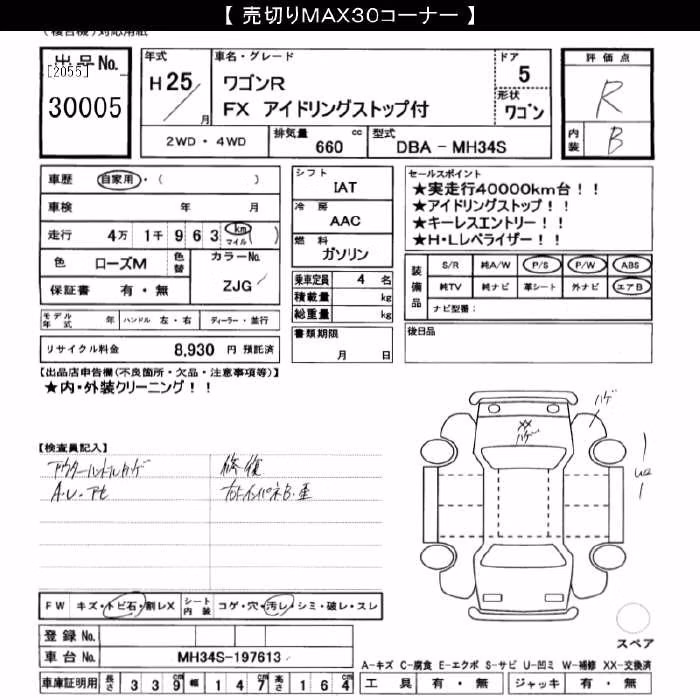 【 売切りMAX30コーナー 】
(複合機)対応用紙
出品No.
[2055]
30005
年式
H 25/
月
車名・グレード
ワゴンR
FX アイドリングストップ付
ドア
5
形状
ワゴン
評価点
R
内装
B
2WD・4WD
排気量
660
cc
型式
DBA - MH34S
車歴 自家用・( )
車検 年 月
走行 4万 1千 9 6 3 km マイル ( )
色 ローズM 色替
カラーNo.
ZJG
保証書 有・無
モデル年式 年 ハンドル 左・右 ディーラー・並行
リサイクル料金 8,930 円 預託済
シフト
IAT
冷房
AAC
燃料
ガソリン
乗車定員 4 名
積載量 kg
総重量 kg
書類期限
月 日
セールスポイント
★実走行40000km台!!
★アイドリングストップ!!
★キーレスエントリー!!
★H・Lレベライザー!!
装備品
S/R 純A/W P/S P/W ABS
純TV 純ナビ 革シート 外ナビ エアB
ナビ型番:
後日品
【出品店申告欄(不良箇所・欠品・注意事項等)】
★内・外装クリーニング!!
【検査員記入】
アウターハンドルハゲ
A.U-アセ
修復
ハゲ
XX
ハゲ
U2
FW キズ・トビ石・割レX
シート内装 コゲ・穴・汚レ・シミ・破レ・スレ
登録No.
車台No. MH34S-197613
車庫証明用 長さ 3 3 9 cm 幅 1 4 7 cm 高さ 1 6 4 cm
スペア
A-キズ C-腐食 E-エクボ S-サビ U-凹ミ W-補修 XX-交換済
工具 有・無 ジャッキ 有・無